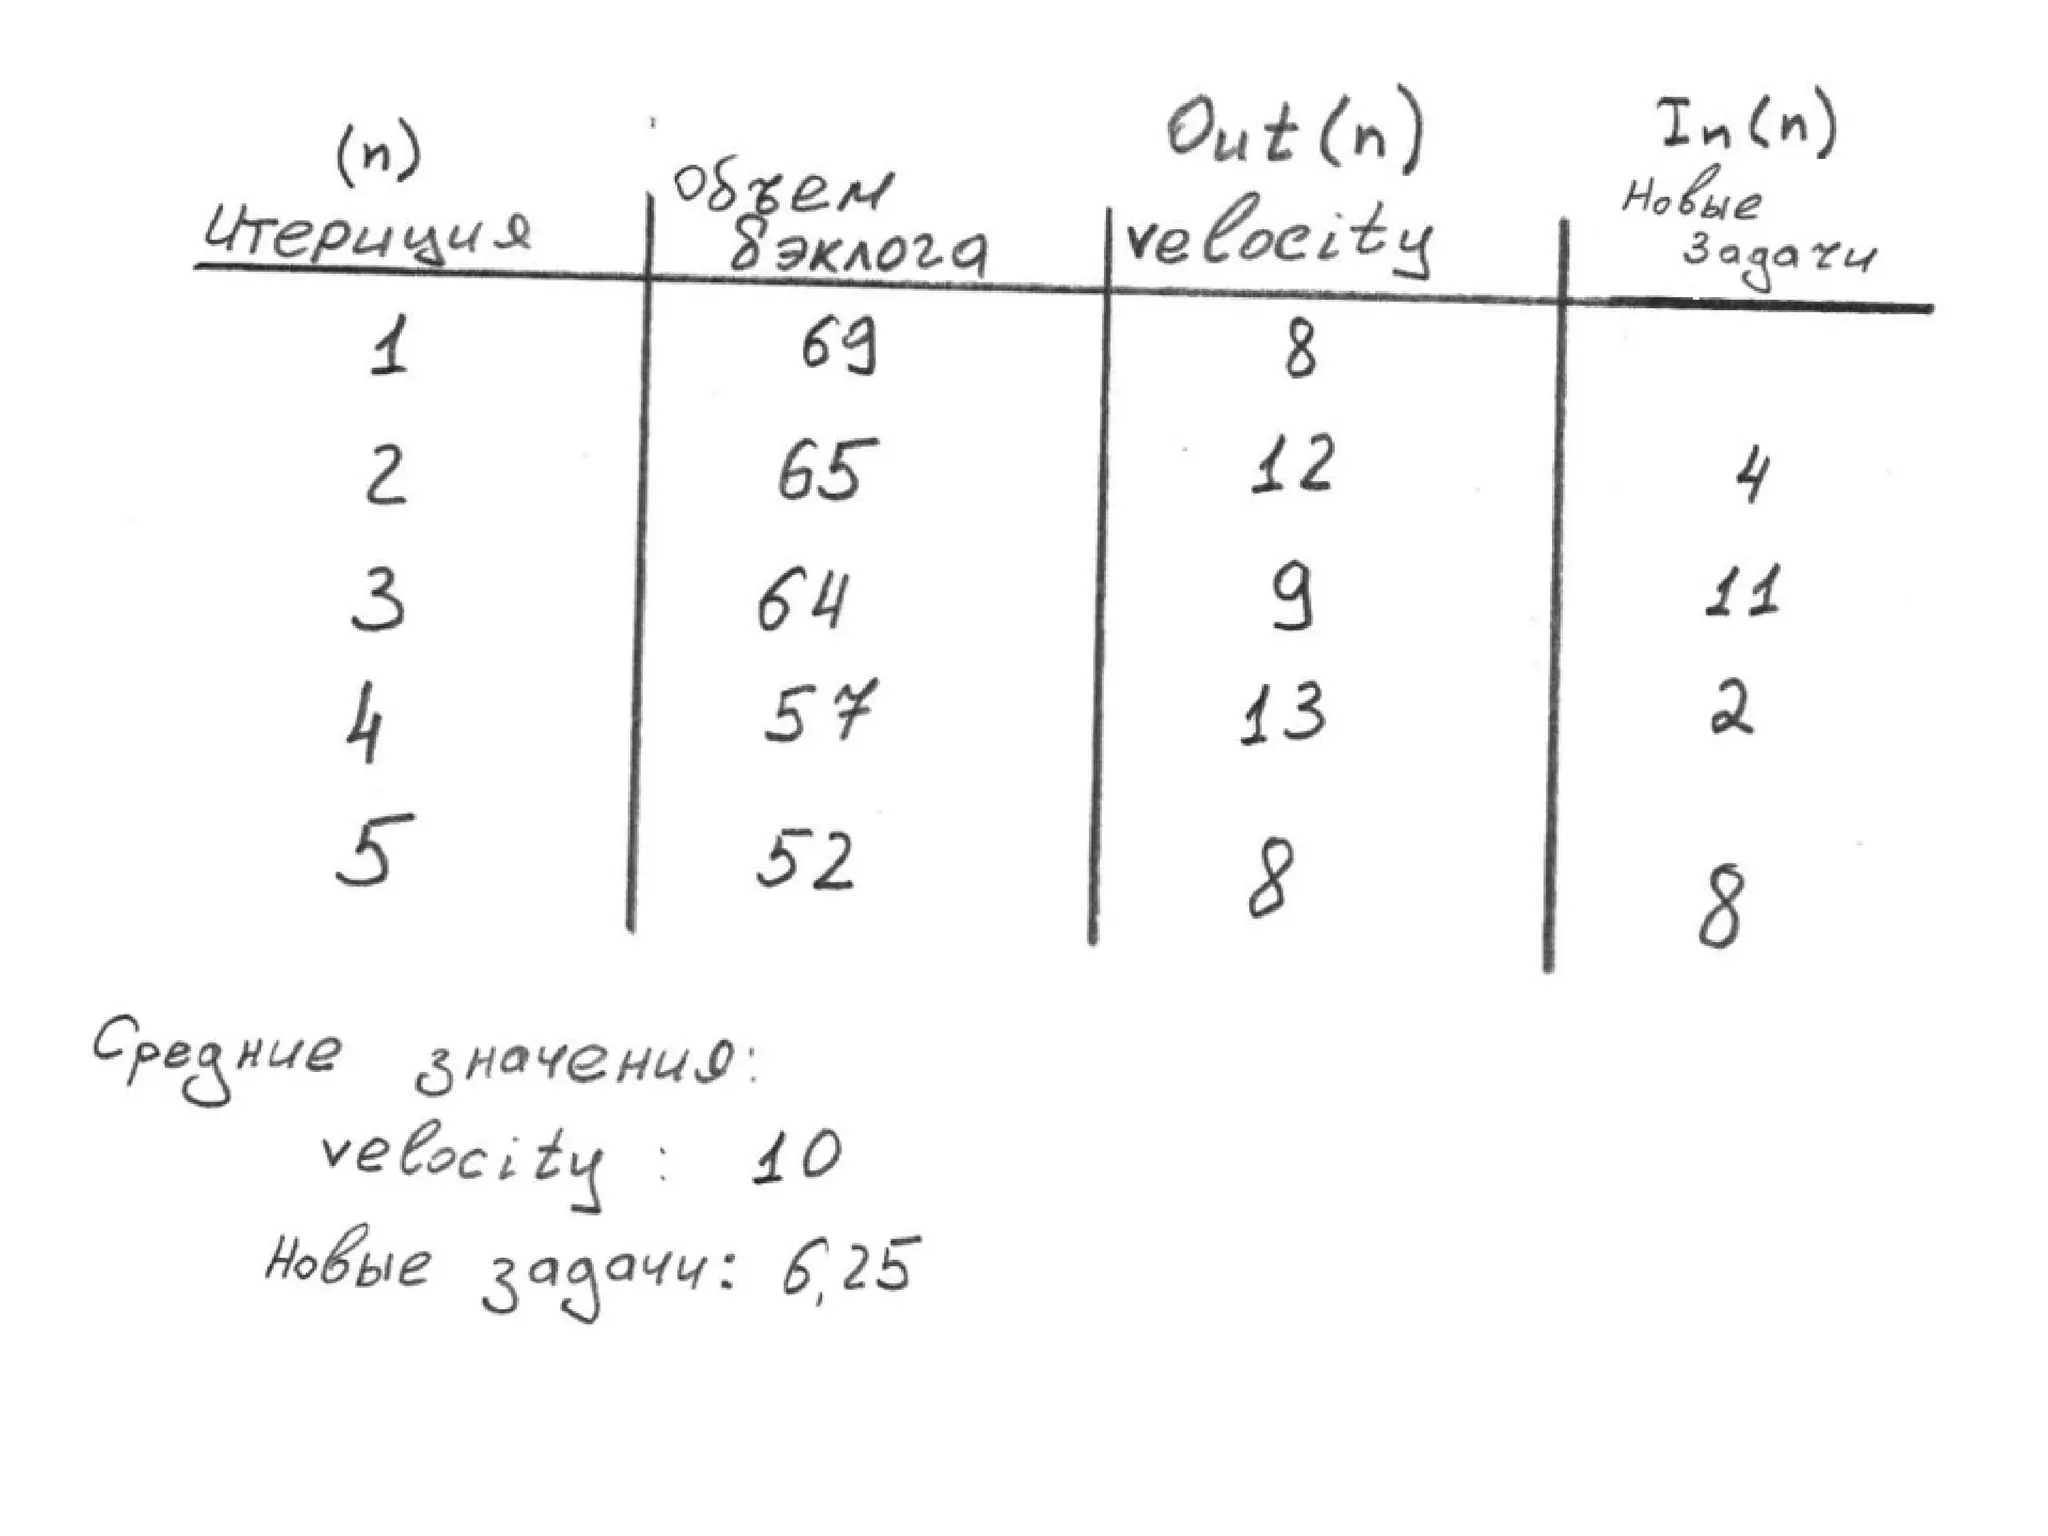 (n) Out(n) In(n)
Итериция Объем бэклога velocity Новые задачи
1 69 8
2 65 12 4
3 64 9 11
4 57 13 2
5 52 8 8
Средние значения:
velocity : 10
Новые задачи: 6,25